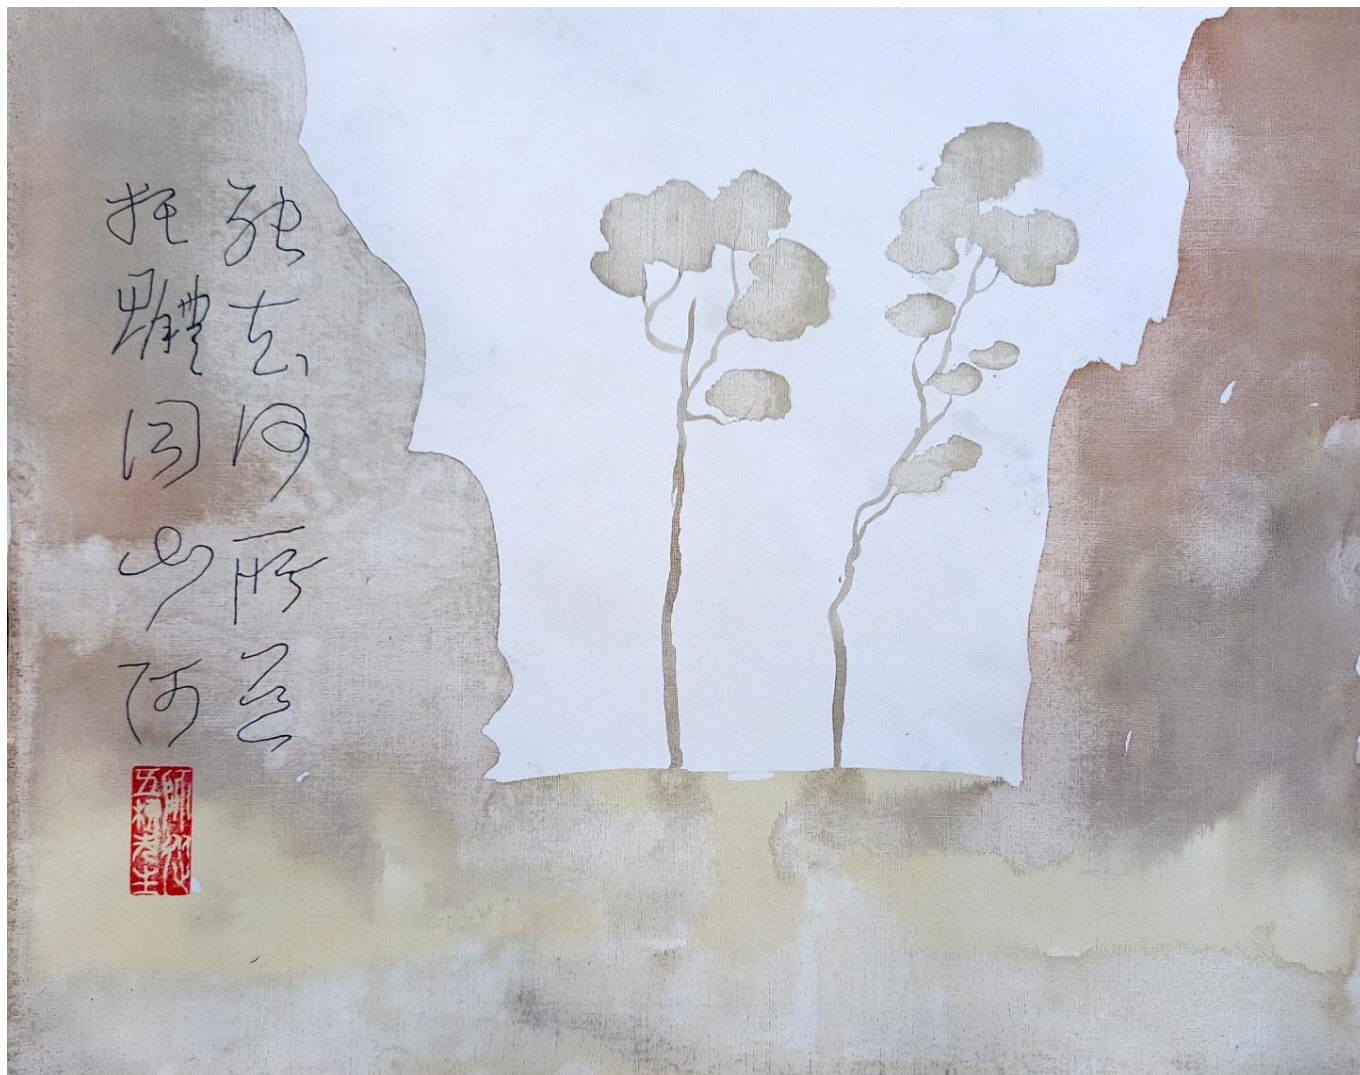 死去何所道
托體同山阿
師從
五柳先生